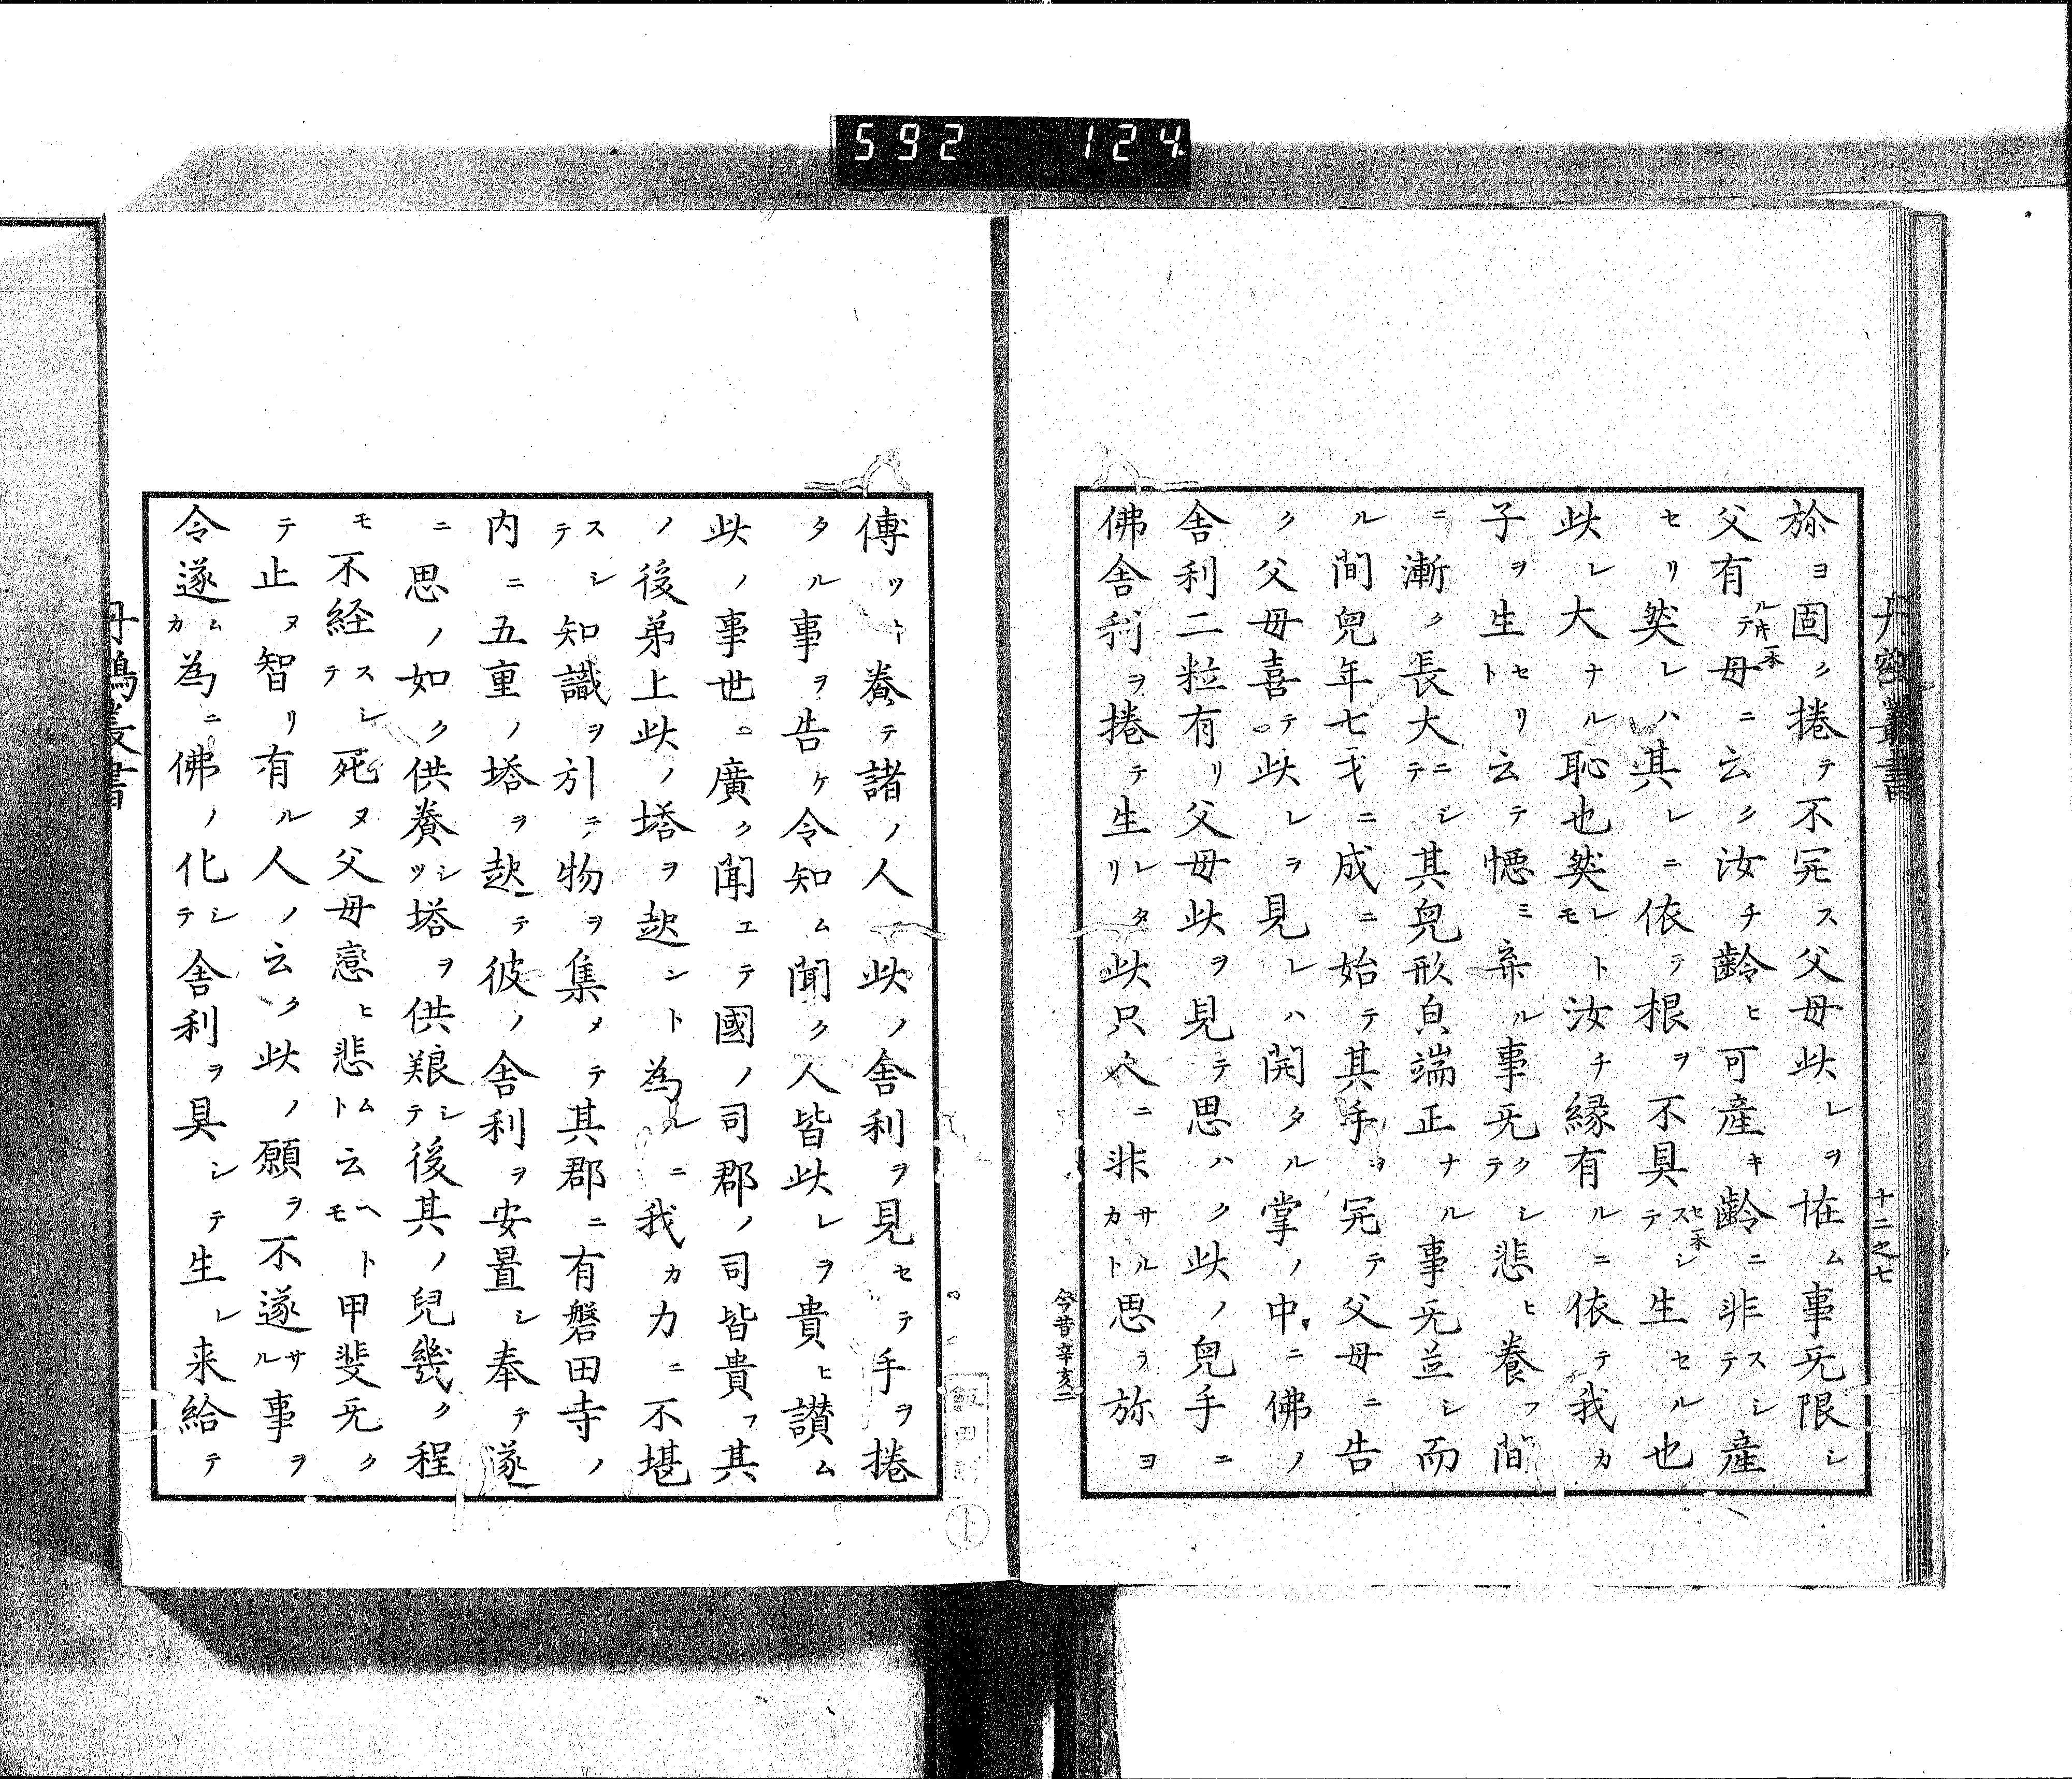 592 124
丹鶴叢書
十二之七
弥ヨ固ク捲テ不開ス父母此レヲ恠ム事无限シ
父有ルキ一本テ母ニ云ク汝チ齢ヒ可産キ齢ニ非スシテ産
セリ然レハ其レニ依テ根ヲ不具スセ一本シテ生セル也
此レ大ナル恥也然レトモ汝チ縁有ルニ依テ我カ
子ヲ生セリト云テ㥶ミ弃ル事无クシテ悲ヒ養フ間
ニ漸ク長大ニシテ其兒形皃端正ナル事无並シ而
ル間兒年七才ニ成ニ始テ其手ヲ開テ父母ニ告
ク父母喜テ此レヲ見レハ開タル掌ノ中ニ佛ノ
舎利二粒有リ父母此ヲ見テ思ハク此ノ兒手ニ
佛舎利ヲ捲テ生レタリ此只人ニ非サルカト思テ弥ヨ
今昔辛亥二
傅ツト養テ諸ノ人ニ此ノ舎利ヲ見セテ手ヲ捲
タル事ヲ告ケ令知ム聞ク人皆此レヲ貴ヒ讃ム
此ノ事世ニ廣ク聞エテ國ノ司郡ノ司皆貴フ其
ノ後弟上此ノ塔ヲ起ントト為ルニ我カ力ニ不堪
スシテ知識ヲ引テ物ヲ集メテ其郡ニ有磐田寺ノ
内ニ五重ノ塔ヲ起テ彼ノ舎利ヲ安置シ奉テ遂
ニ思ノ如ク供養シツ塔ヲ供養シテ後其ノ兒幾ク程
モ不経スシテ死ヌ父母戀ヒ悲ムト云ヘトモ甲斐无ク
テ止ヌ智リ有ル人ノ云ク此ノ願ヲ不遂サル事ヲ
令遂ムカ為ニ佛ノ化シテ舎利ヲ具シテ生レ来給テ
丹鶴叢書